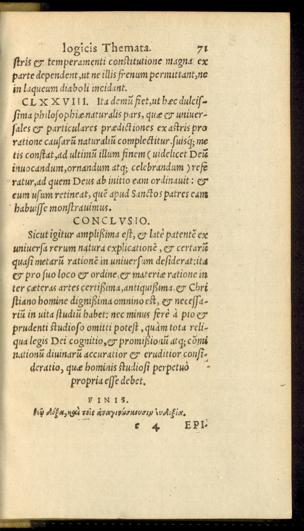 logicis Themata. 71
stris & temperamenti constitutione magna ex
parte dependent, ut ne illis frenum permittant, ne
in laqueum diaboli incidant.
CLXXVIII. Ita demũ fiet, ut hæc dulcis-
sima philosophiæ naturalis pars, quæ & univer-
sales & particulares prædictiones ex astris pro
ratione causarũ naturaliũ complectitur, suisq; me
tis constat, ad ultimũ illum finem (videlicet Deũ
invocandum, ornandum atq; celebrandum) refe
ratur, ad quem Deus ab initio eam ordinavit: &
eum usum retineat, quẽ apud Sanctos patres eam
habuisse monstravimus.
CONCLVSIO.
Sicut igitur amplißima est, & latè patentẽ ex
universa rerum natura explicationẽ, & certarũ
quasi metarũ rationẽ in universum desiderat: ita
& pro suo loco & ordine, & materiæ ratione in
ter cæteras artes certißima, antiquißima & Chri
stiano homine dignißima omnino est, & necessa-
riũ in vita studiũ habet: nec minus ferè à pio &
prudenti studioso omitti potest, quàm tota reli-
qua legis Dei cognitio, & promißionũ atq; cõmi
nationũ divinarũ accuratior & eruditior consi-
deratio, quæ hominis studiosi perpetuò
propria esse debet.
FINIS.
καὶ τοῖς ἀναγινώσκουσιν
e 4 EPI-